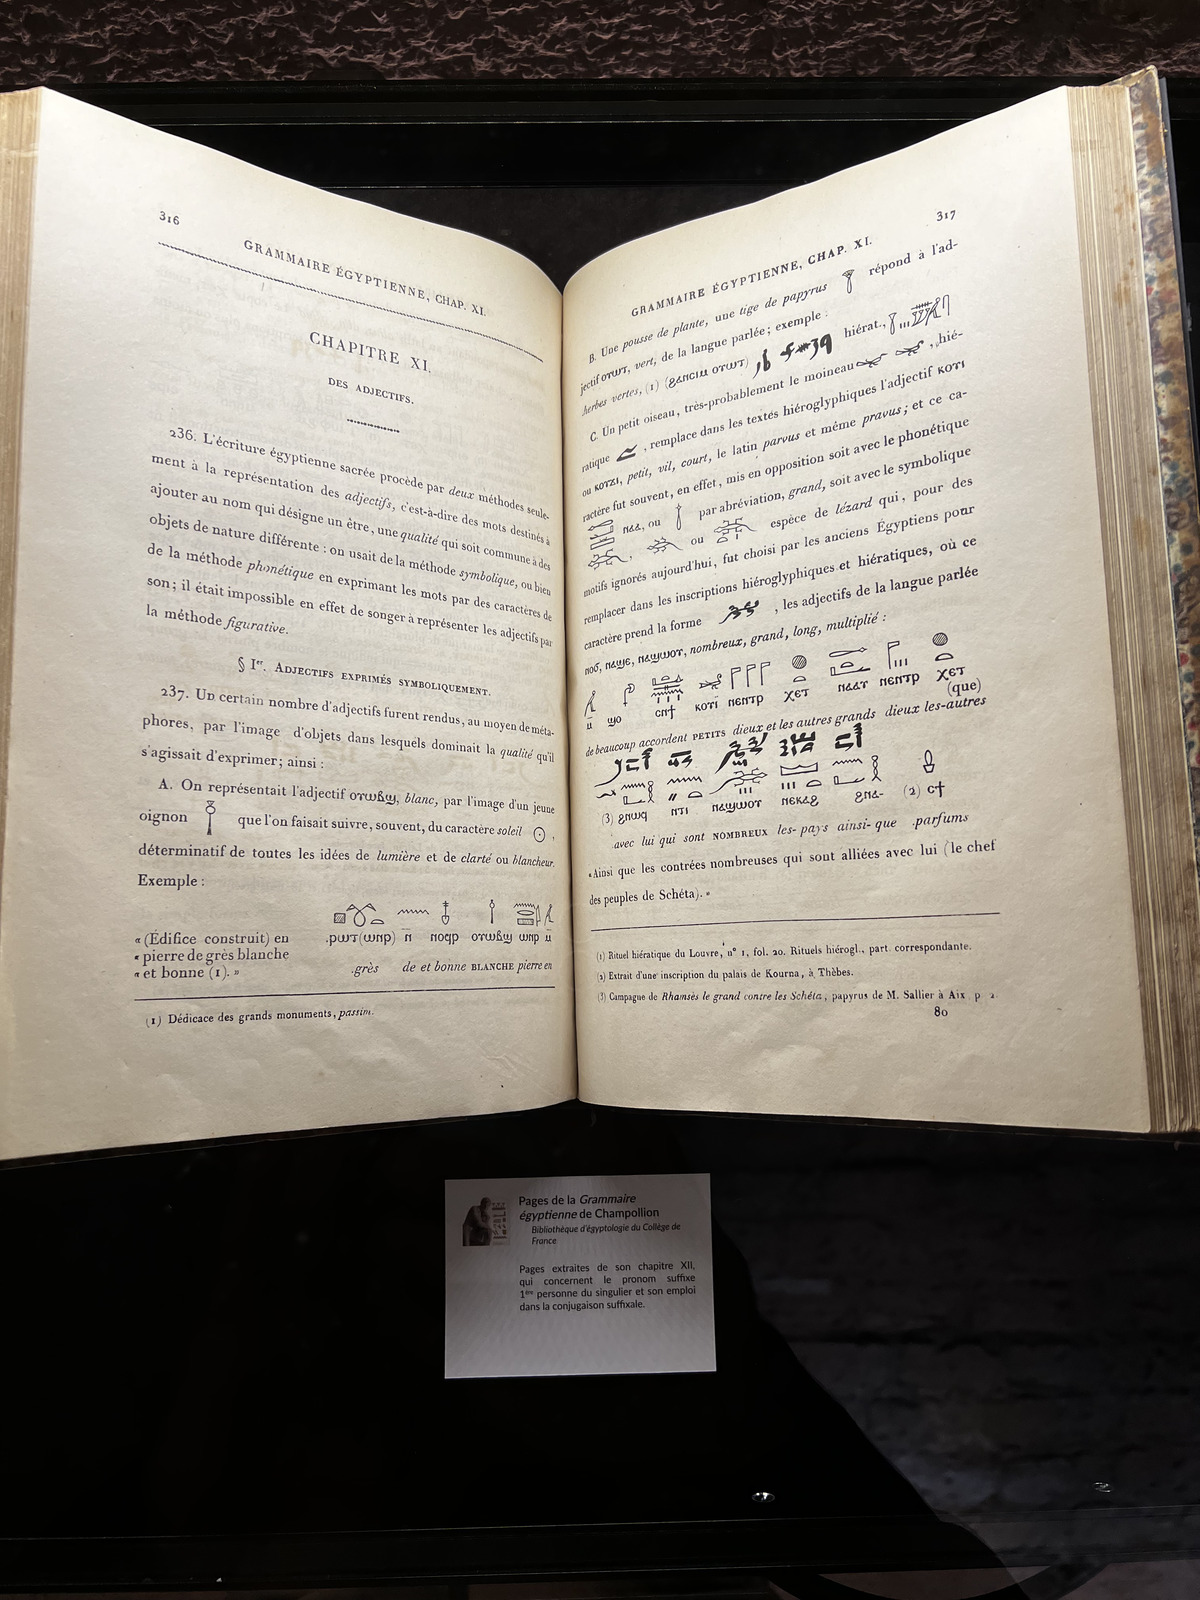 316
GRAMMAIRE ÉGYPTIENNE, CHAP. XI.
CHAPITRE XI.
DES ADJECTIFS.
236. L'écriture égyptienne sacrée procède par deux méthodes seule-
ment à la représentation des adjectifs, c'est-à-dire des mots destinés à
ajouter au nom qui désigne un être, une qualité qui soit commune à des
objets de nature différente : on usait de la méthode symbolique, ou bien
de la méthode phonétique en exprimant les mots par des caractères de
son; il était impossible en effet de songer à représenter les adjectifs par
la méthode figurative.
§ Ier. ADJECTIFS EXPRIMÉS SYMBOLIQUEMENT.
237. Un certain nombre d'adjectifs furent rendus, au moyen de méta-
phores, par l'image d'objets dans lesquels dominait la qualité qu'il
s'agissait d'exprimer; ainsi :
A. On représentait l'adjectif ⲟⲩⲱⲃϣ, blanc, par l'image d'un jeune
oignon que l'on faisait suivre, souvent, du caractère soleil ,
déterminatif de toutes les idées de lumière et de clarté ou blancheur.
Exemple :
« (Édifice construit) en .ⲣⲱⲧ(ⲱⲛⲣ) ⲛ̄ ⲛⲟϥⲣ ⲟⲩⲱⲃϣ ⲱⲛⲣ ⲙ̄
« pierre de grès blanche
« et bonne (1). » .grès de et bonne BLANCHE pierre en
(1) Dédicace des grands monuments, passim.
317
GRAMMAIRE ÉGYPTIENNE, CHAP. XI.
B. Une pousse de plante, une tige de papyrus répond à l'ad-
jectif ⲟⲩⲱⲧ, vert, de la langue parlée; exemple : hiérat.,
herbes vertes, (1) (ϩⲁⲛⲥⲓⲙ ⲟⲩⲱⲧ)
C. Un petit oiseau, très-probablement le moineau , hié-
ratique , remplace dans les textes hiéroglyphiques l'adjectif ⲕⲟⲩⲓ
ou ⲕⲟⲩϫⲓ, petit, vil, court, le latin parvus et même pravus; et ce ca-
ractère fut souvent, en effet, mis en opposition soit avec le phonétique
ⲛⲁⲁ, ou par abréviation, grand, soit avec le symbolique
, ou espèce de lézard qui, pour des
motifs ignorés aujourd'hui, fut choisi par les anciens Égyptiens pour
remplacer dans les inscriptions hiéroglyphiques et hiératiques, où ce
caractère prend la forme , les adjectifs de la langue parlée
ⲛⲟϭ, ⲛⲁϣⲉ, ⲛⲁϣⲱⲟⲩ, nombreux, grand, long, multiplié :
ⲙ̄ ϣⲟ ⲥⲛϯ ⲕⲟⲩⲓ ⲛⲉⲛⲧⲣ ⲭⲉⲧ ⲛⲁⲁⲩ ⲛⲉⲛⲧⲣ ⲭⲉⲧ
(que)
de beaucoup accordent PETITS dieux et les autres grands dieux les-autres
(3) ϩⲛⲱϥ ⲛⲧⲓ ⲛⲁϣⲱⲟⲩ ⲛⲉⲕⲁϩ ϩⲛⲁ- (2) ⲥϯ
avec lui qui sont NOMBREUX les-pays ainsi-que .parfums
«Ainsi que les contrées nombreuses qui sont alliées avec lui (le chef
des peuples de Schéta).»
(1) Rituel hiératique du Louvre, n° 1, fol. 20. Rituels hiérogl., part. correspondante.
(2) Extrait d'une inscription du palais de Kourna, à Thèbes.
(3) Campagne de Rhamsès le grand contre les Schéta, papyrus de M. Sallier à Aix p. 2
80
Pages de la Grammaire
égyptienne de Champollion
Bibliothèque d'égyptologie du Collège de
France
Pages extraites de son chapitre XII,
qui concernent le pronom suffixe
1ère personne du singulier et son emploi
dans la conjugaison suffixale.